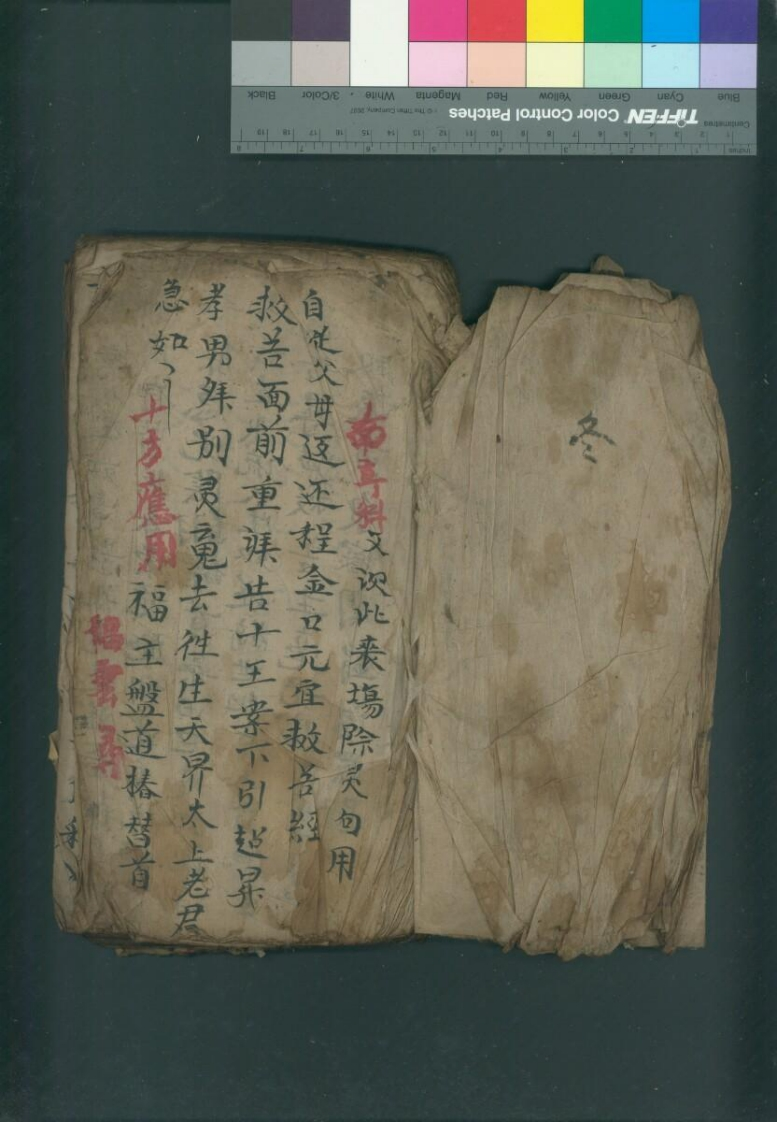 冬
南亭科
又次此丧塲除灵句用
自従父母返还程金口元宜救苦經
救苦面前重拜告十王案下引超昇
孝男拜别灵䰟去徃生天界太上老君
急如〻
十方應用
福主盤道椿替首
TIFFEN Color Control Patches
© The Tiffen Company, 2007
Blue Cyan Green Yellow Red Magenta White 3/Color Black
Centimetres
Inches